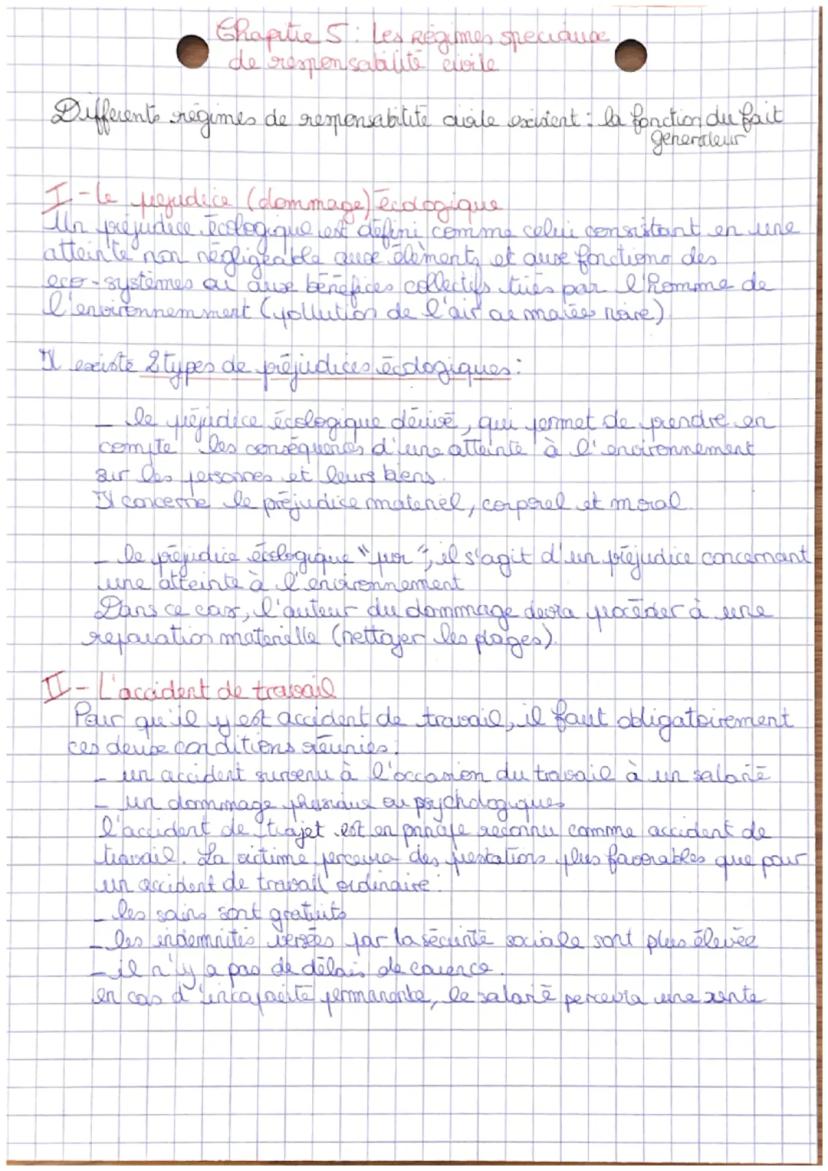 Chapitre 5 : Les Régimes speciaux
de responsabilité civile
Différents régimes de responsabilité civile existent : la fonction du fait
generateur
I - Le prejudice (dommage) écologique
Un préjudice écologique est défini comme celui consistant en une
atteinte non négligeable aux éléments et aux fonctions des
eco-systèmes ou aux bénéfices collectifs tirés par l'Homme de
l'environnemment (pollution de l'air ou marée noire)
Il existe 2 types de préjudices écologiques :
- le préjudice écologique dérivé, qui permet de prendre en
compte les conséquences d'une atteinte à l'environnement
sur les personnes et leurs biens.
Il concerne le préjudice materiel, corporel et moral
- le préjudice écologique "pur", il s'agit d'un préjudice concernant
une atteinte à l'environnement
Dans ce cas, l'auteur du dommage devra procéder à une
reparation materielle (nettoyer les plages).
II - L'accident de travail
Pour qu'il y est accident de travail, il faut obligatoirement
ces deux conditions réunies.
- un accident survenu à l'occasion du travail à un salarié
- un dommage physique ou psychologiques
l'accident de trajet est en principe reconnu comme accident de
travail. La victime percevra des prestations plus favorables que pour
un accident de travail ordinaire :
- les soins sont gratuits
- les indemnités versées par la sécurité sociale sont plus élevée
- il n'y a pas de délais de carence.
en cas d'incapacité permanante, le salarié percevra une rente